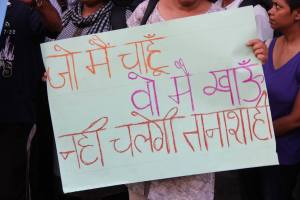 जो मैं चाहूँ
वो मैं खाऊँ
नहीं चलेगी तानाशाही